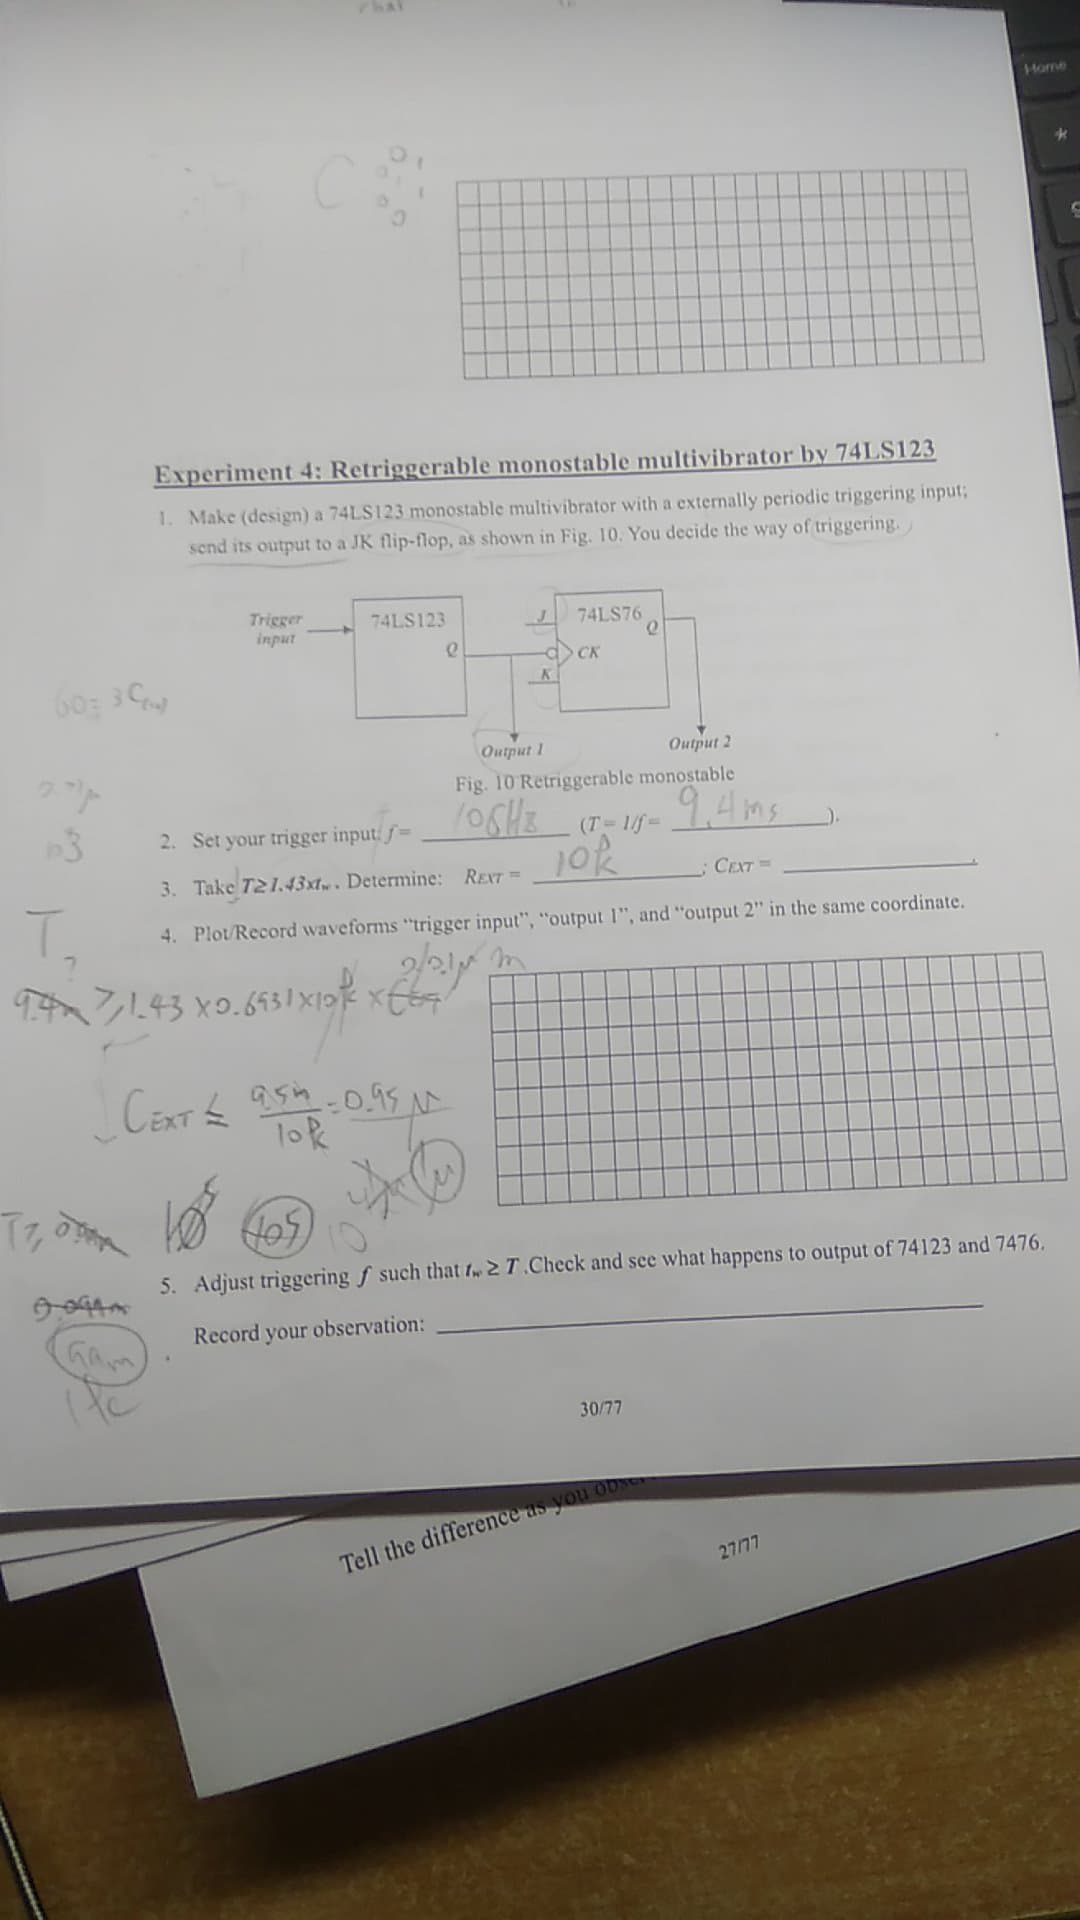 Home
*
C
Experiment 4: Retriggerable monostable multivibrator by 74LS123
1. Make (design) a 74LS123 monostable multivibrator with a externally periodic triggering input;
send its output to a JK flip-flop, as shown in Fig. 10. You decide the way of triggering.
Trigger
input
74LS123
Q
J
74LS76
Q
CK
K
Output 1
Output 2
Fig. 10 Retriggerable monostable
2. Set your trigger input. f= 106Hz (T= 1/f= 9.4ms ).
3. Take T≥1.43xtw. Determine: REXT = 10k ; CEXT = .
4. Plot/Record waveforms “trigger input”, “output 1”, and “output 2” in the same coordinate.
T
?
≥1.43 x0.6931x10k x
CEXT ≤ 9.5m/10k = 0.95 μ
105
10
5. Adjust triggering f such that tw ≥ T .Check and see what happens to output of 74123 and 7476.
Record your observation:
30/77
Tell the difference as you
27/77